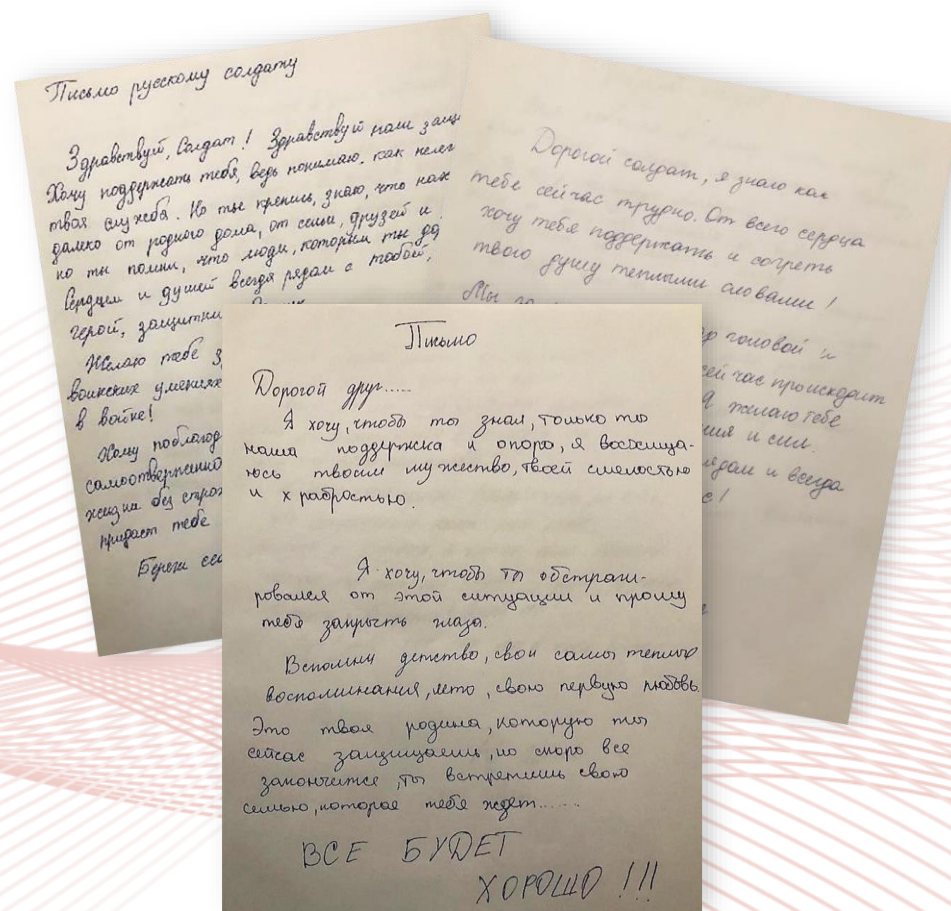 Письмо русскому солдату
Здравствуй, Солдат! Здравствуй наш
Хочу поддержать тебя, ведь понимаю, как
твоя служба. Но ты крепись, знаю, что
далеко от родного дома, от семьи, друзей и
но ты помни, что люди, которым ты
Сердцем и душой всегда рядом с тобой,
герой,
Желаю тебе
воинских умениях
в войне!
Хочу
жизни без
придаст тебе
Береги
Дорогой солдат, я знаю как
тебе сейчас трудно. От всего сердца
хочу тебя поддержать и согреть
твою душу теплыми словами!
Мы
головой и
сейчас происходит
Я желаю тебе
и сил.
рядом и всегда
Письмо
Дорогой друг.....
Я хочу, чтобы ты знал, только ты
наша поддержка и опора, я восхища-
юсь твоим мужество, твоей смелостью
и храбростью.
Я хочу, чтобы ты абстраги-
ровался от этой ситуации и прошу
тебя закрыть глаза.
Вспомни детство, свои самы теплые
воспоминания, лето, свою первую любовь.
Это твоя родина, которую ты
сейчас защищаешь, но скоро все
закончится, ты встретишь свою
семью, которая тебя ждет......
ВСЕ БУДЕТ
ХОРОШО !!!